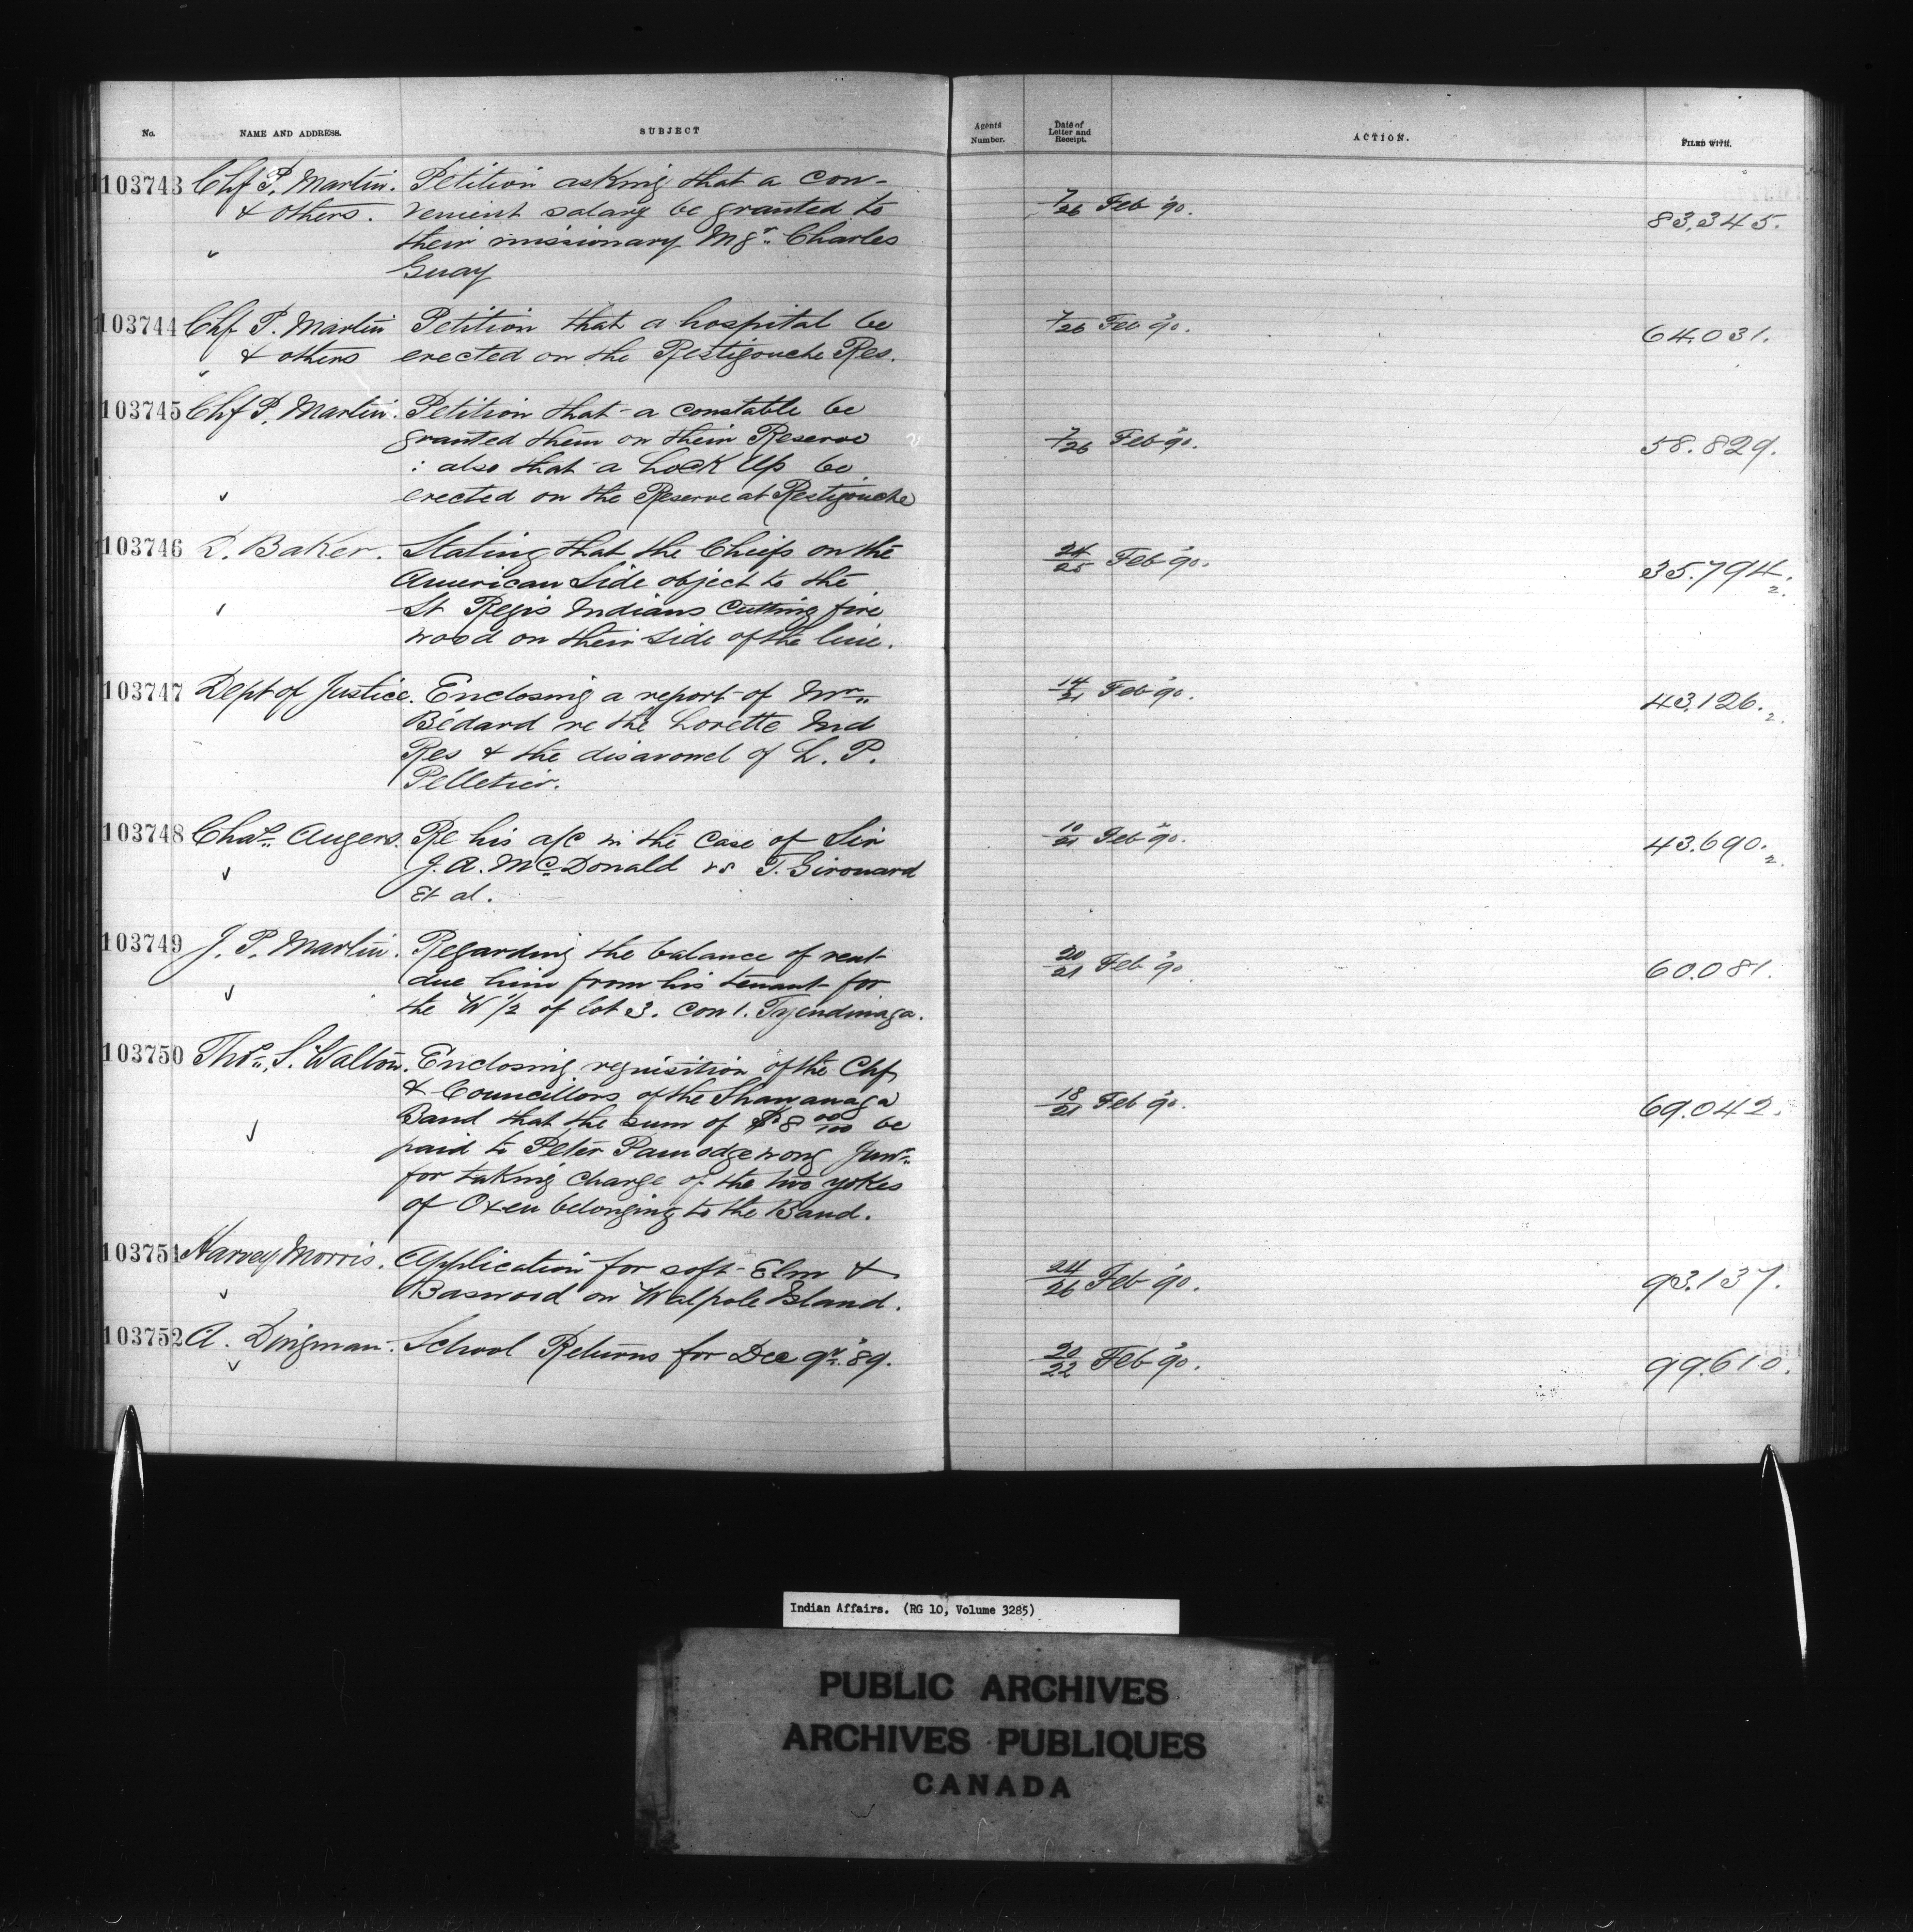 No. NAME AND ADDRESS. SUBJECT Agents Number. Date of Letter and Receipt. ACTION. FILED WITH.
103743 Chf P. Martin. Petition asking that a con-
& others. venient salary be granted to 7/26 Feb '90. 83,345.
their missionary Mgr. Charles
Guay
103744 Chf P. Martin Petition that a hospital be 7/26 Feb '90. 64,031.
& others erected on the Restigouche Res.
103745 Chf P. Martin. Petition that a constable be
granted them on their Reserve 7/26 Feb '90. 58.829.
: also that a Lock Up be
erected on the Reserve at Restigouche
103746 D. Baker. Stating that the Chiefs on the 24/25 Feb '90. 35.794.2.
American Side object to the
St Regis Indians Cutting fire
wood on their side of the line.
103747 Dept of Justice. Enclosing a report of Mr. 14/21 Feb '90. 43,126.2.
Bédard re the Lorette Ind
Res & the disavowel of L. P.
Pelletier.
103748 Chas. Augers. Re his a/c in the Case of Sir 10/21 Feb '90. 43.690.2.
J. A. McDonald vs T. Girouard
et al.
103749 J. P. Martin. Regarding the balance of rent 20/21 Feb '90 60.081.
due him from his tenant for
the W 1/2 of lot 3. Con 1. Tyendinaga.
103750 Thos. S. Walton. Enclosing requisition of the Chf
& Councillors of the Shawanaga 18/21 Feb '90. 69.042.
Band that the sum of $8 00/100 be
paid to Peter Pamodgewong Junr.
for taking charge of the two yokes
of Oxen belonging to the Band.
103751 Harvey Morris. Application for soft Elm & 24/26 Feb '90. 93.137.
Baswood on Walpole Island.
103752 A. Dingman. School Returns for Dec qr. '89. 20/22 Feb '90. 99.610.
Indian Affairs. (RG 10, Volume 3285)
PUBLIC ARCHIVES
ARCHIVES PUBLIQUES
CANADA